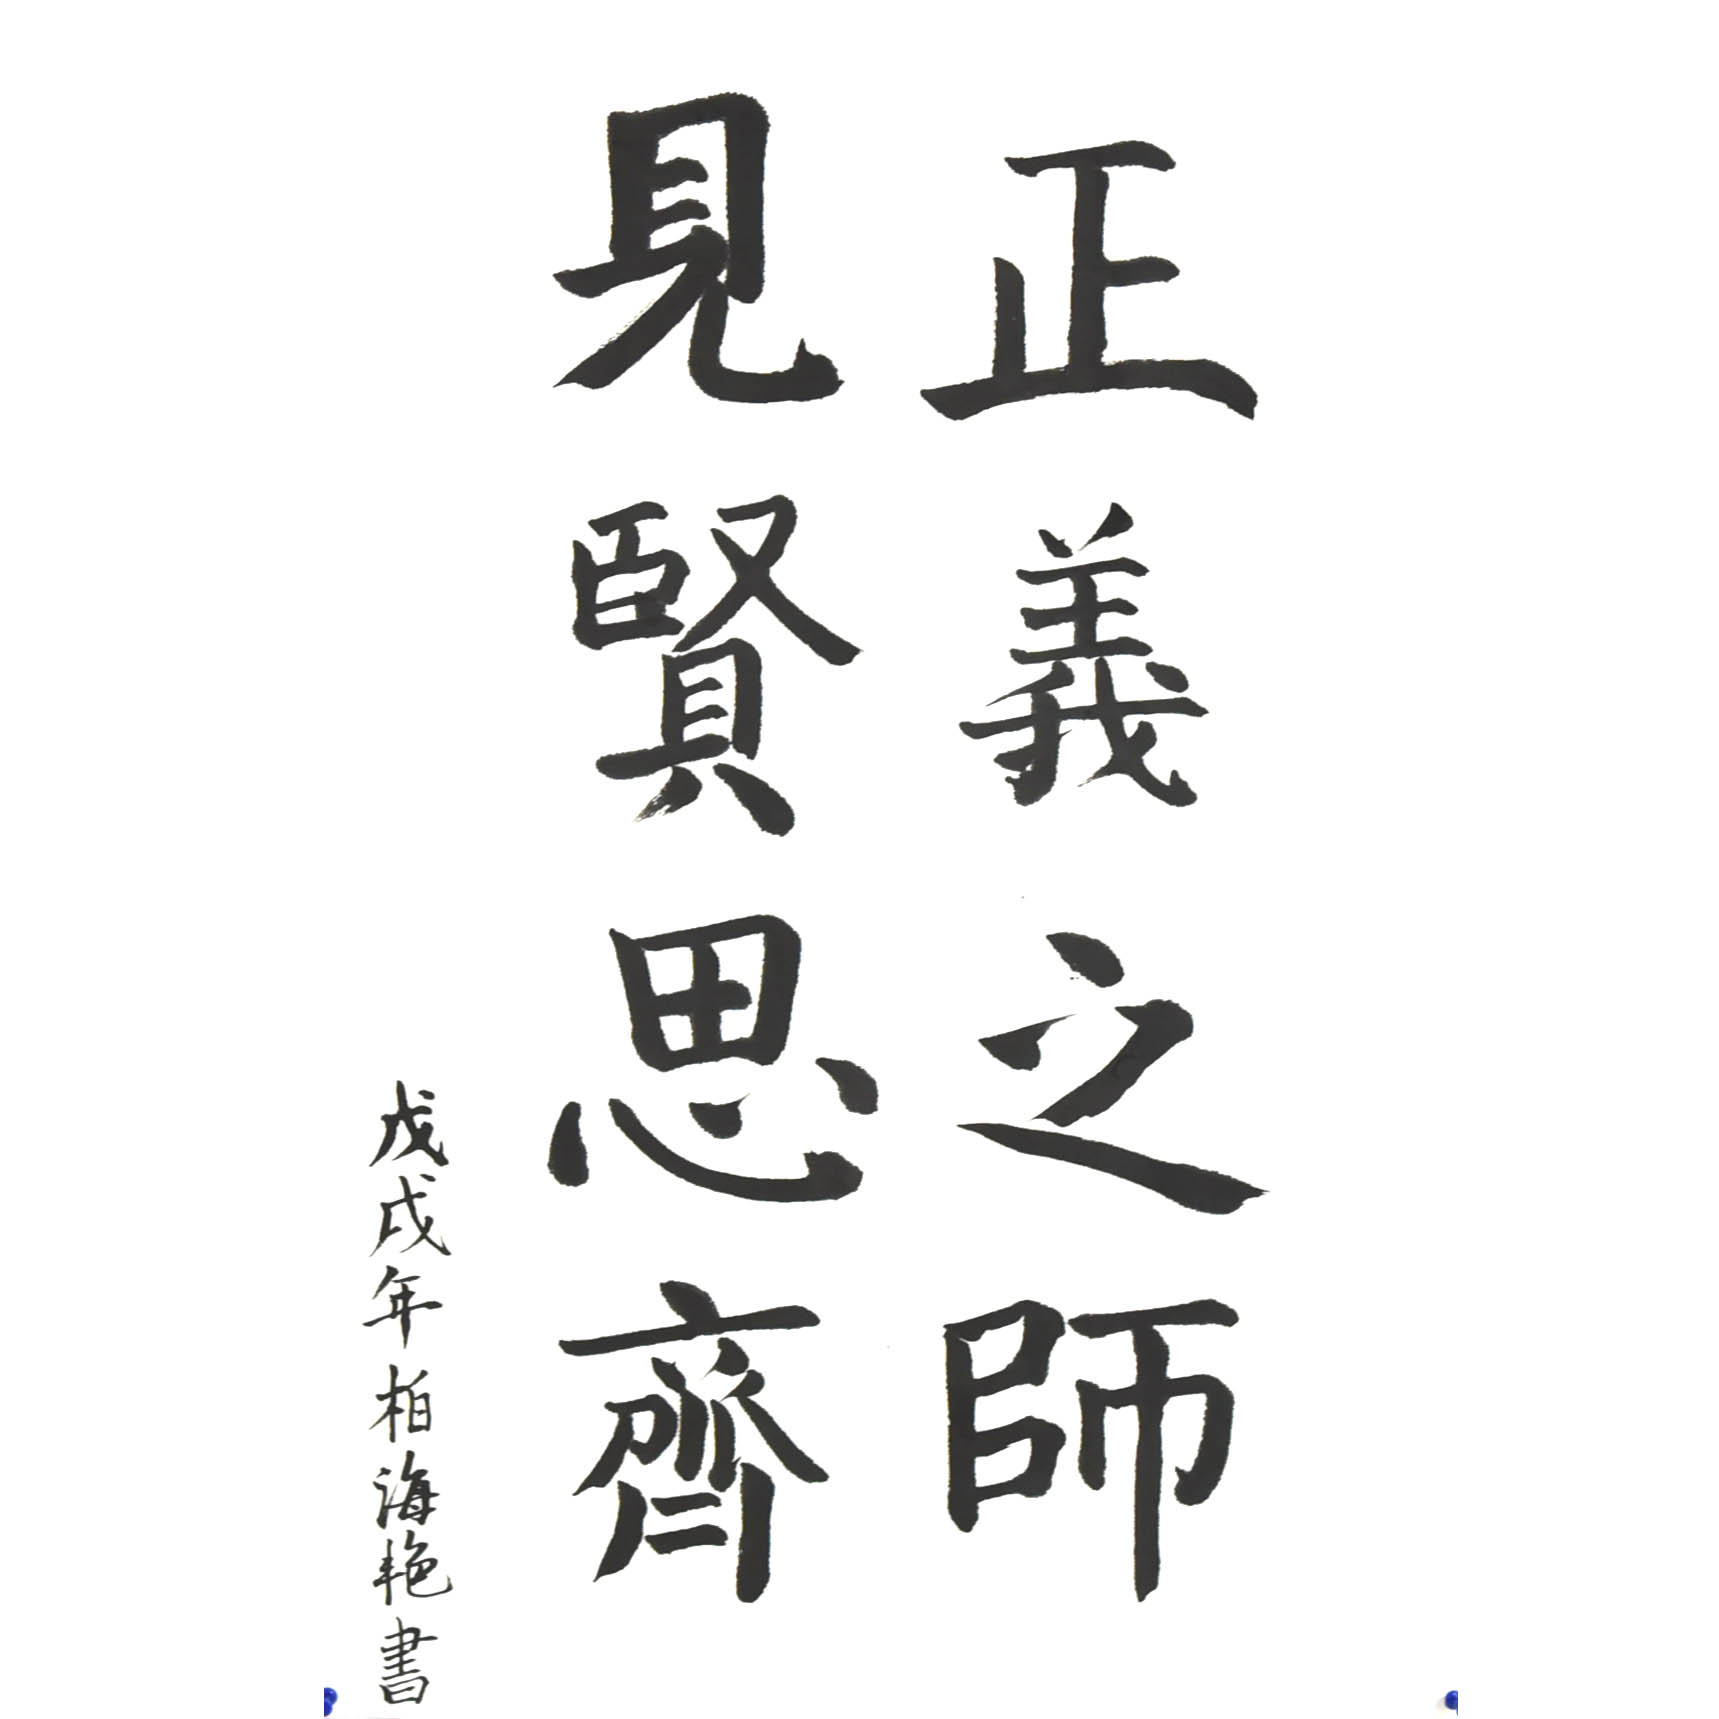 正義之師
見賢思齊
戊戌年柏海艳書